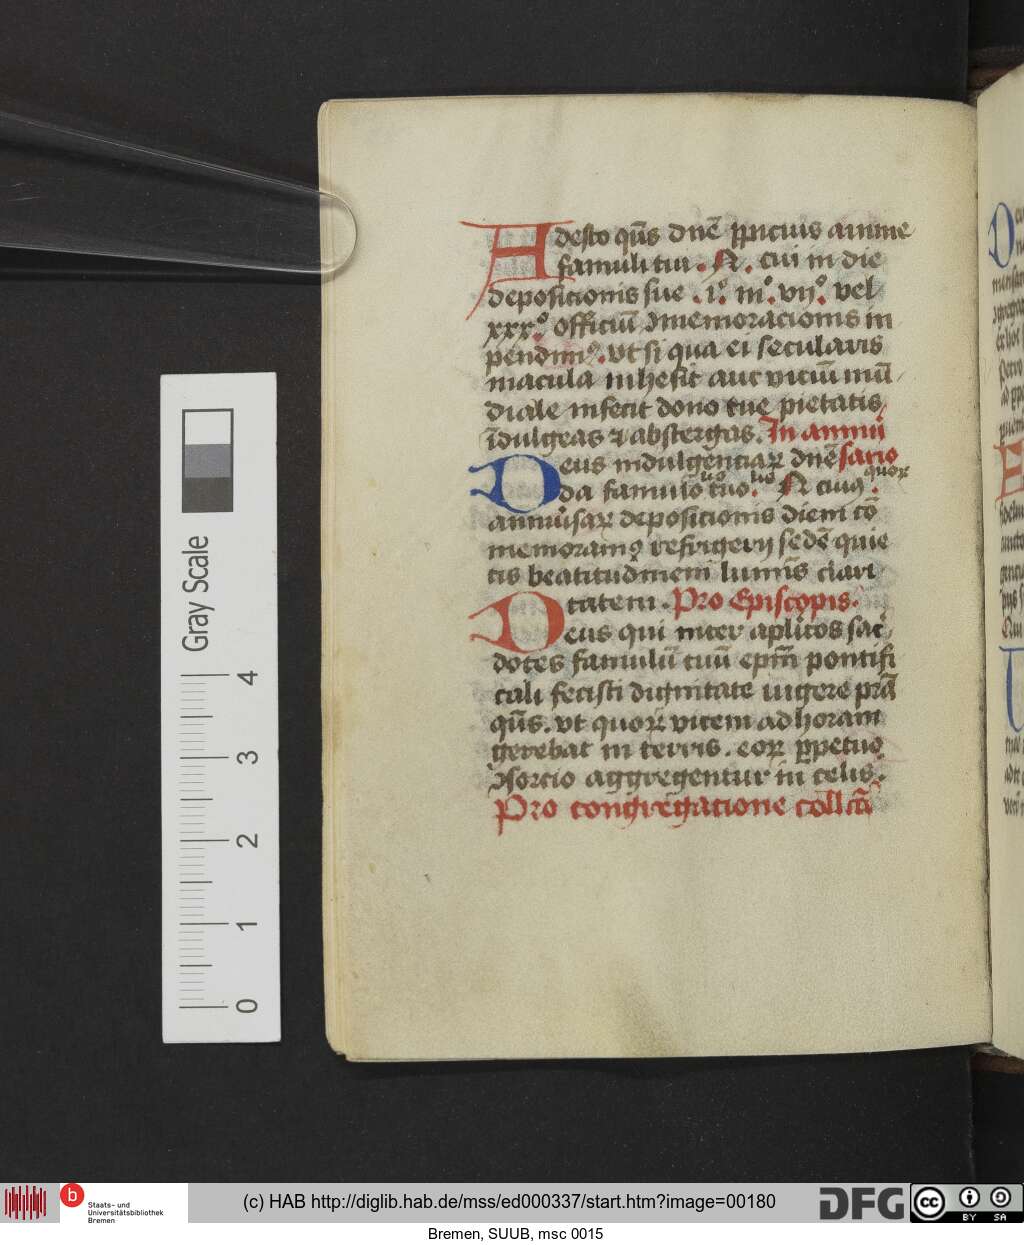 Adesto qūs dnē ꝓpicius anime
famuli tui . N . cui in die
deposicionis sue . iº. iijº. vijº. vel
xxxº. officiū ɔmemoracionis in
pendim⁹. vt si qua ei secularis
macula inhesit aut viciū mū
diale infecit dono tue pietatis
īdulgeas ⁊ abstergas. In anniū
Deus indulgenciaꝝ dnē sario
quoꝝ
lis lis
da famulo tuo. N cui⁹.
anniūsaꝝ deposicionis diem cō
memoram⁹ refrigerij sedē quie
tis beatitudinem luminis clari
tatem. Pro Episcopis.
Deus qui inter aplicos sac
dotes famulū tuū epm pontifi
cali fecisti dignitate uigere prā
qūs. vt quoꝝ vicem ad horam
gerebat in terris. eoꝝ ꝑpetuo
ɔsorcio aggregentur in celis.
Pro congregacione collcā
Gray Scale
4
3
2
1
0
b
Staats- und
Universitätsbibliothek
Bremen
(c) HAB http://diglib.hab.de/mss/ed000337/start.htm?image=00180
DFG
cc BY SA
Bremen, SUUB, msc 0015